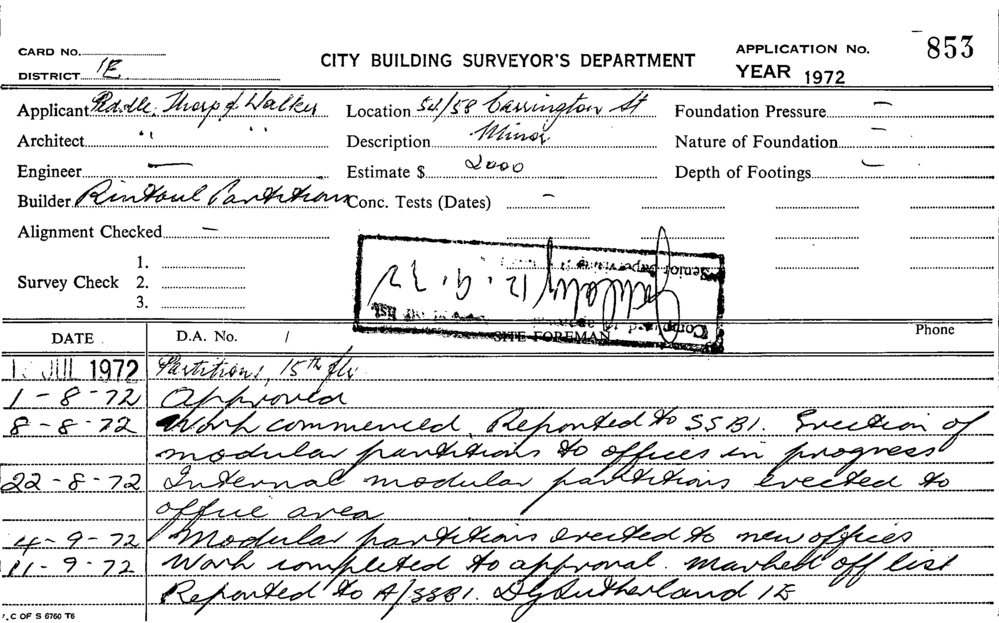 CARD No.
DISTRICT 1E
CITY BUILDING SURVEYOR'S DEPARTMENT
APPLICATION No. 853
YEAR 1972
Applicant Peddle, Thorp & Walker
Location 54/58 Carrington St
Foundation Pressure –
Architect " "
Description Minor
Nature of Foundation –
Engineer —
Estimate $ 2000
Depth of Footings –
Builder Rintoul Partitions
Conc. Tests (Dates) –
Alignment Checked –
Survey Check
1.
2.
3.
Senior Supervising
12.9.72
DATE
D.A. No. /
SITE FOREMAN
Phone
JUL 1972 Partitions, 15th flr
1-8-72 Approved
8-8-72 Work commenced. Reported to SSBI. Erection of
modular partitions to offices in progress
22-8-72 Internal modular partitions erected to
office area
4-9-72 Modular partitions erected to new offices
11-9-72 Work completed to approval. Marked off list
Reported to A/SSBI. DJ Sutherland 1E
C OF S 6760 T6